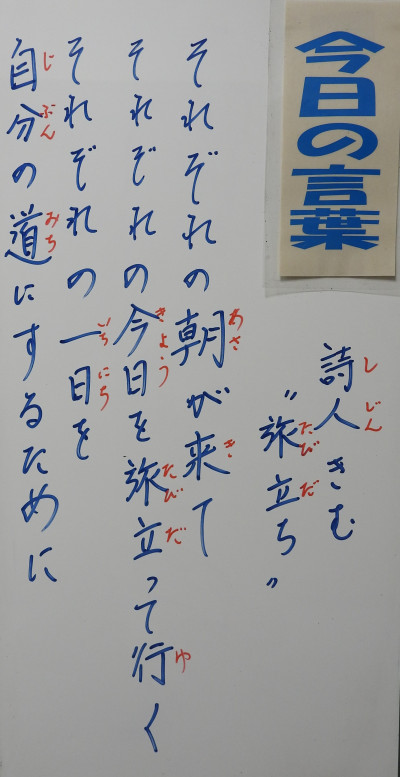 今日の言葉
詩人きむ
“旅立ち”
それぞれの朝が来て
それぞれの今日を旅立って行く
それぞれの一日を
自分の道にするために
しじん
たびだ
あさ
き
きょう
たびだ
ゆ
いちにち
じぶん
みち